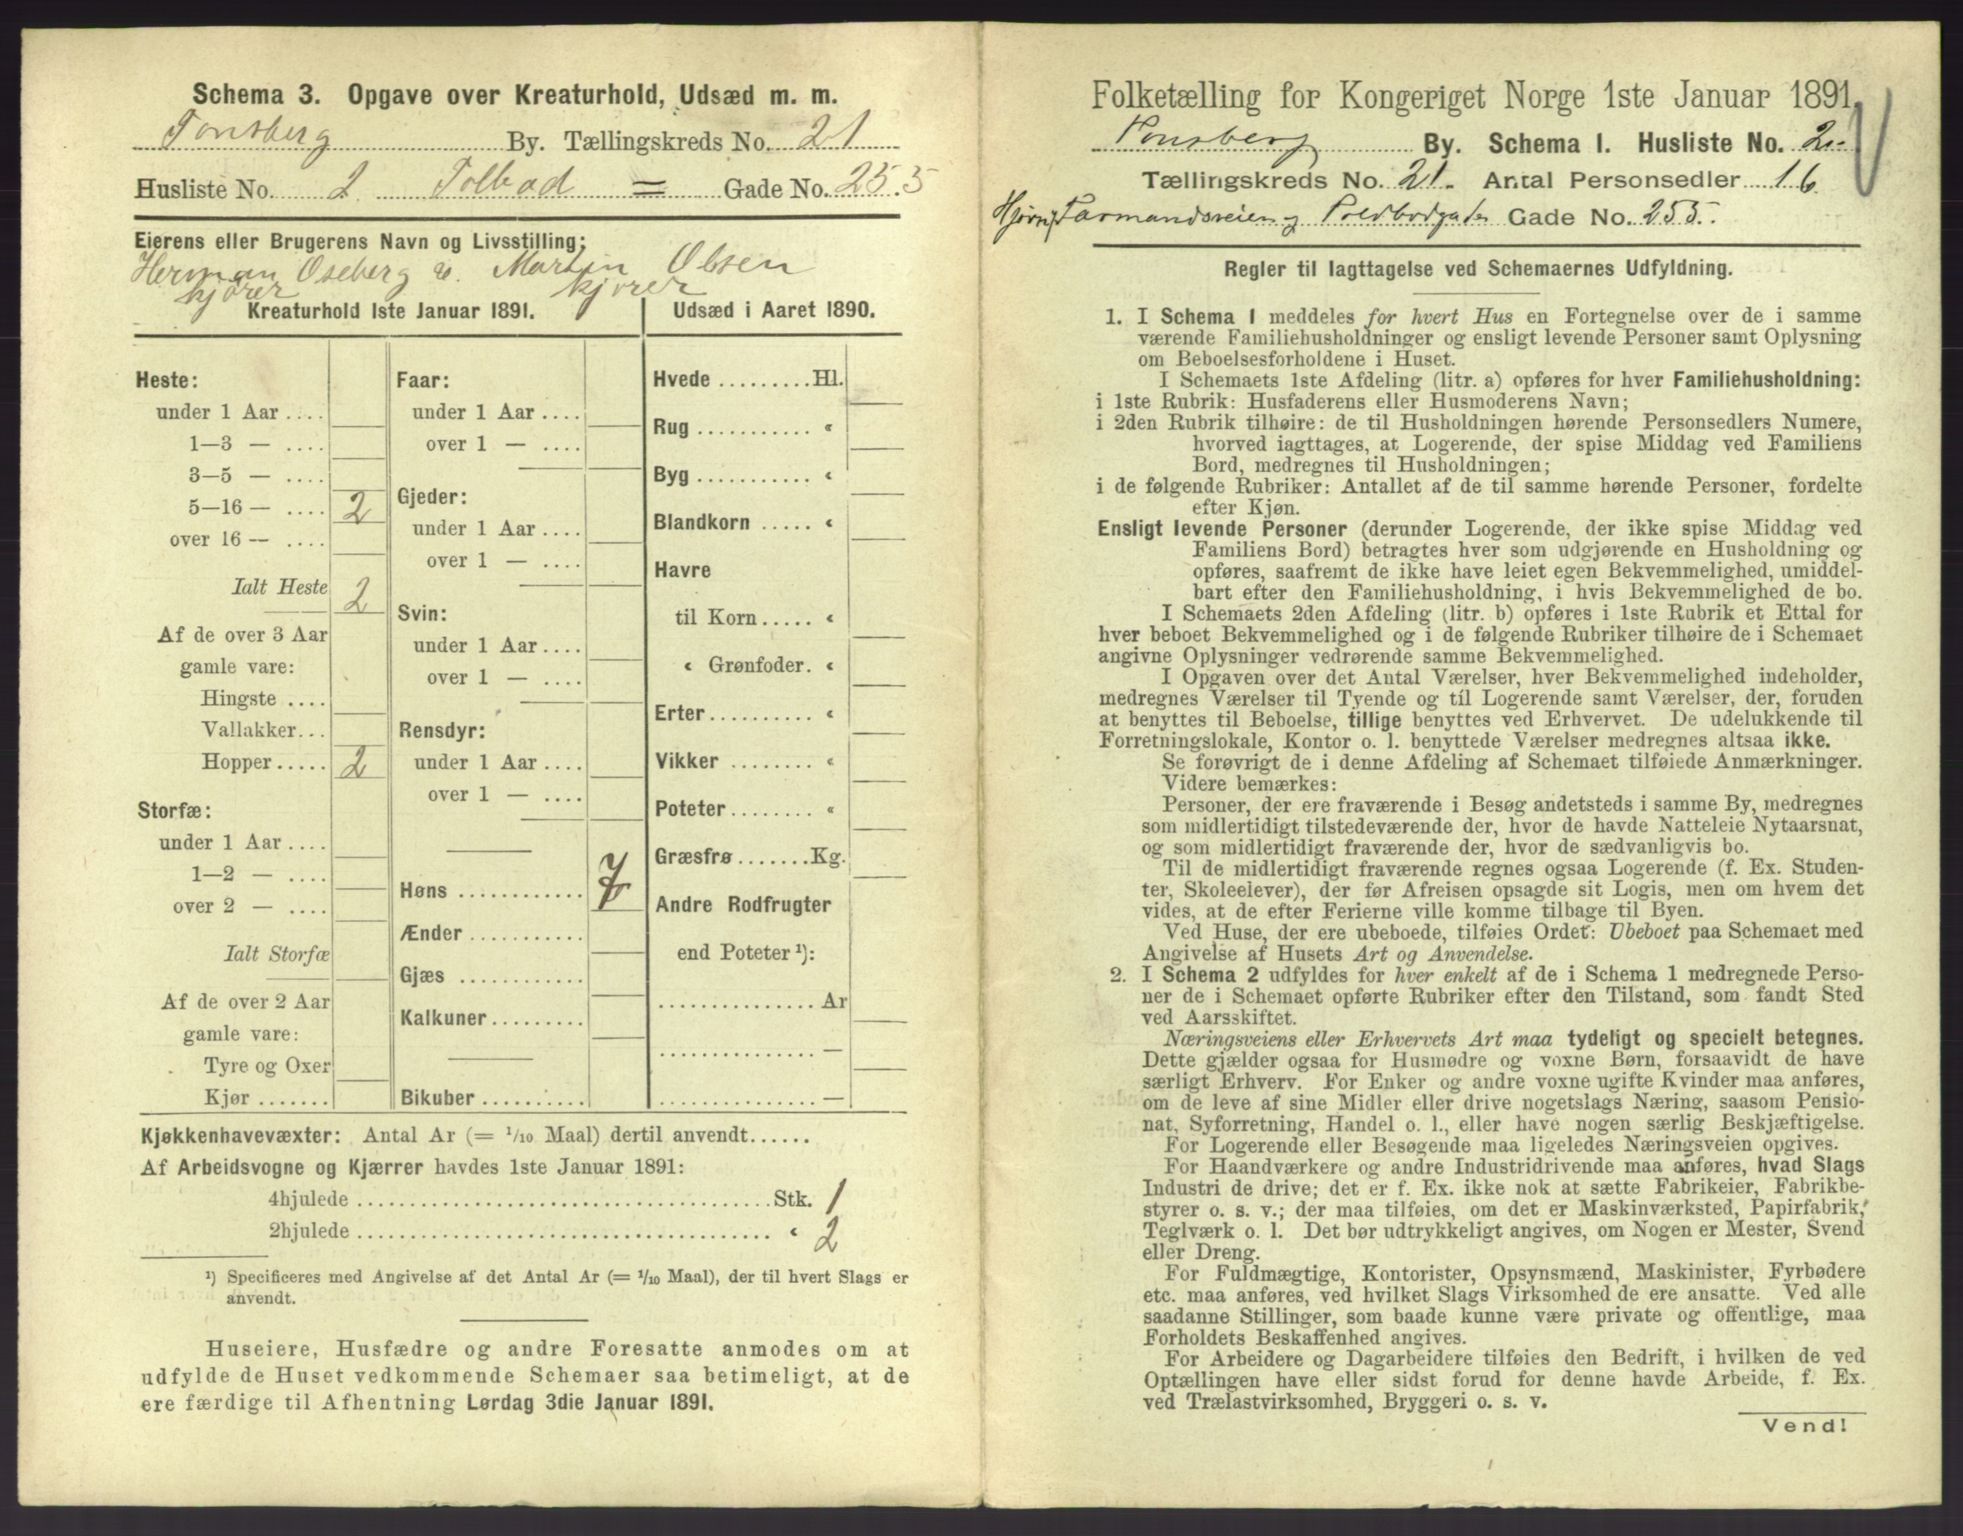 Schema 3. Opgave over Kreaturhold, Udsæd m. m.
Tønsberg By. Tællingskreds No. 21
Husliste No. 2 Tolbod = Gade No. 255
Eierens eller Brugerens Navn og Livsstilling:
Herman Oseberg & Martin Olsen
kjører kjører
Kreaturhold 1ste Januar 1891.
Heste:
under 1 Aar ....
1—3 — ....
3—5 — ....
5—16 — .... 2
over 16 — ....
Ialt Heste 2
Af de over 3 Aar
gamle vare:
Hingste ....
Vallakker...
Hopper..... 2
Storfæ:
under 1 Aar ....
1—2 — ....
over 2 — ....
Ialt Storfæ
Af de over 2 Aar
gamle vare:
Tyre og Oxer
Kjør .......
Faar:
under 1 Aar ....
over 1 — ....
Gjeder:
under 1 Aar ....
over 1 — ....
Svin:
under 1 Aar ....
over 1 — ....
Rensdyr:
under 1 Aar ....
over 1 — ....
Høns ............ 7
Ænder ...........
Gjæs ............
Kalkuner.........
Bikuber ..........
Udsæd i Aaret 1890.
Hvede .........Hl.
Rug ........... «
Byg ........... «
Blandkorn ..... «
Havre
til Korn..... «
« Grønfoder. «
Erter.......... «
Vikker ........ «
Poteter ........ «
Græsfrø.......Kg.
Andre Rodfrugter
end Poteter ¹):
............... Ar
............... —
............... —
Kjøkkenhavevæxter: Antal Ar (= 1/10 Maal) dertil anvendt......
Af Arbeidsvogne og Kjærrer havdes 1ste Januar 1891:
4hjulede ........................................Stk. 1
2hjulede ........................................ « 2
¹) Specificeres med Angivelse af det Antal Ar (= 1/10 Maal), der til hvert Slags er
anvendt.
Huseiere, Husfædre og andre Foresatte anmodes om at
udfylde de Huset vedkommende Schemaer saa betimeligt, at de
ere færdige til Afhentning Lørdag 3die Januar 1891.
Folketælling for Kongeriget Norge 1ste Januar 1891.
Tønsberg By. Schema I. Husliste No. 2.
Tællingskreds No. 21. Antal Personsedler 16
Farmandsveien og Toldbodgaden Gade No. 255.
Regler til Iagttagelse ved Schemaernes Udfyldning.
1. I Schema 1 meddeles for hvert Hus en Fortegnelse over de i samme
værende Familiehusholdninger og ensligt levende Personer samt Oplysning
om Beboelsesforholdene i Huset.
I Schemaets 1ste Afdeling (litr. a) opføres for hver Familiehusholdning:
i 1ste Rubrik: Husfaderens eller Husmoderens Navn;
i 2den Rubrik tilhøire: de til Husholdningen hørende Personsedlers Numere,
hvorved iagttages, at Logerende, der spise Middag ved Familiens
Bord, medregnes til Husholdningen;
i de følgende Rubriker: Antallet af de til samme hørende Personer, fordelte
efter Kjøn.
Ensligt levende Personer (derunder Logerende, der ikke spise Middag ved
Familiens Bord) betragtes hver som udgjørende en Husholdning og
opføres, saafremt de ikke have leiet egen Bekvemmelighed, umiddel-
bart efter den Familiehusholdning, i hvis Bekvemmelighed de bo.
I Schemaets 2den Afdeling (litr. b) opføres i 1ste Rubrik et Ettal for
hver beboet Bekvemmelighed og i de følgende Rubriker tilhøire de i Schemaet
angivne Oplysninger vedrørende samme Bekvemmelighed.
I Opgaven over det Antal Værelser, hver Bekvemmelighed indeholder,
medregnes Værelser til Tyende og til Logerende samt Værelser, der, foruden
at benyttes til Beboelse, tillige benyttes ved Erhvervet. De udelukkende til
Forretningslokale, Kontor o. l. benyttede Værelser medregnes altsaa ikke.
Se forøvrigt de i denne Afdeling af Schemaet tilføiede Anmærkninger.
Videre bemærkes:
Personer, der ere fraværende i Besøg andetsteds i samme By, medregnes
som midlertidigt tilstedeværende der, hvor de havde Natteleie Nytaarsnat,
og som midlertidigt fraværende der, hvor de sædvanligvis bo.
Til de midlertidigt fraværende regnes ogsaa Logerende (f. Ex. Studen-
ter, Skoleelever), der før Afreisen opsagde sit Logis, men om hvem det
vides, at de efter Ferierne ville komme tilbage til Byen.
Ved Huse, der ere ubeboede, tilføies Ordet: Ubeboet paa Schemaet med
Angivelse af Husets Art og Anvendelse.
2. I Schema 2 udfyldes for hver enkelt af de i Schema 1 medregnede Perso-
ner de i Schemaet opførte Rubriker efter den Tilstand, som fandt Sted
ved Aarsskiftet.
Næringsveiens eller Erhvervets Art maa tydeligt og specielt betegnes.
Dette gjælder ogsaa for Husmødre og voxne Børn, forsaavidt de have
særligt Erhverv. For Enker og andre voxne ugifte Kvinder maa anføres,
om de leve af sine Midler eller drive nogetslags Næring, saasom Pensio-
nat, Syforretning, Handel o. l., eller have nogen særlig Beskjæftigelse.
For Logerende eller Besøgende maa ligeledes Næringsveien opgives.
For Haandværkere og andre Industridrivende maa anføres, hvad Slags
Industri de drive; det er f. Ex. ikke nok at sætte Fabrikeier, Fabrikbe-
styrer o. s. v.; der maa tilføies, om det er Maskinværksted, Papirfabrik,
Teglværk o. l. Det bør udtrykkeligt angives, om Nogen er Mester, Svend
eller Dreng.
For Fuldmægtige, Kontorister, Opsynsmænd, Maskinister, Fyrbødere
etc. maa anføres, ved hvilket Slags Virksomhed de ere ansatte. Ved alle
saadanne Stillinger, som baade kunne være private og offentlige, maa
Forholdets Beskaffenhed angives.
For Arbeidere og Dagarbeidere tilføies den Bedrift, i hvilken de ved
Optællingen have eller sidst forud for denne havde Arbeide, f. Ex.
ved Trælastvirksomhed, Bryggeri o. s. v.
Vend!